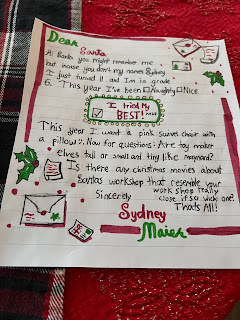 Dear
Santa
Hi Santa, you might remember me
but incase you don't my name's Sydney
I just turned 11 and Im in grade
6. This year I've been ☐Naughty ☐Nice
☑ I tried My
BEST!
This year I want a pink swivel chair with
a pillow. Now for questions: Are toy maker
elves tall or small and tiny like
Is there any christmas movies about
Santas workshop that resemble your
work shop really
close if so which one?
Thats All!
Sincerely
Sydney
Maier